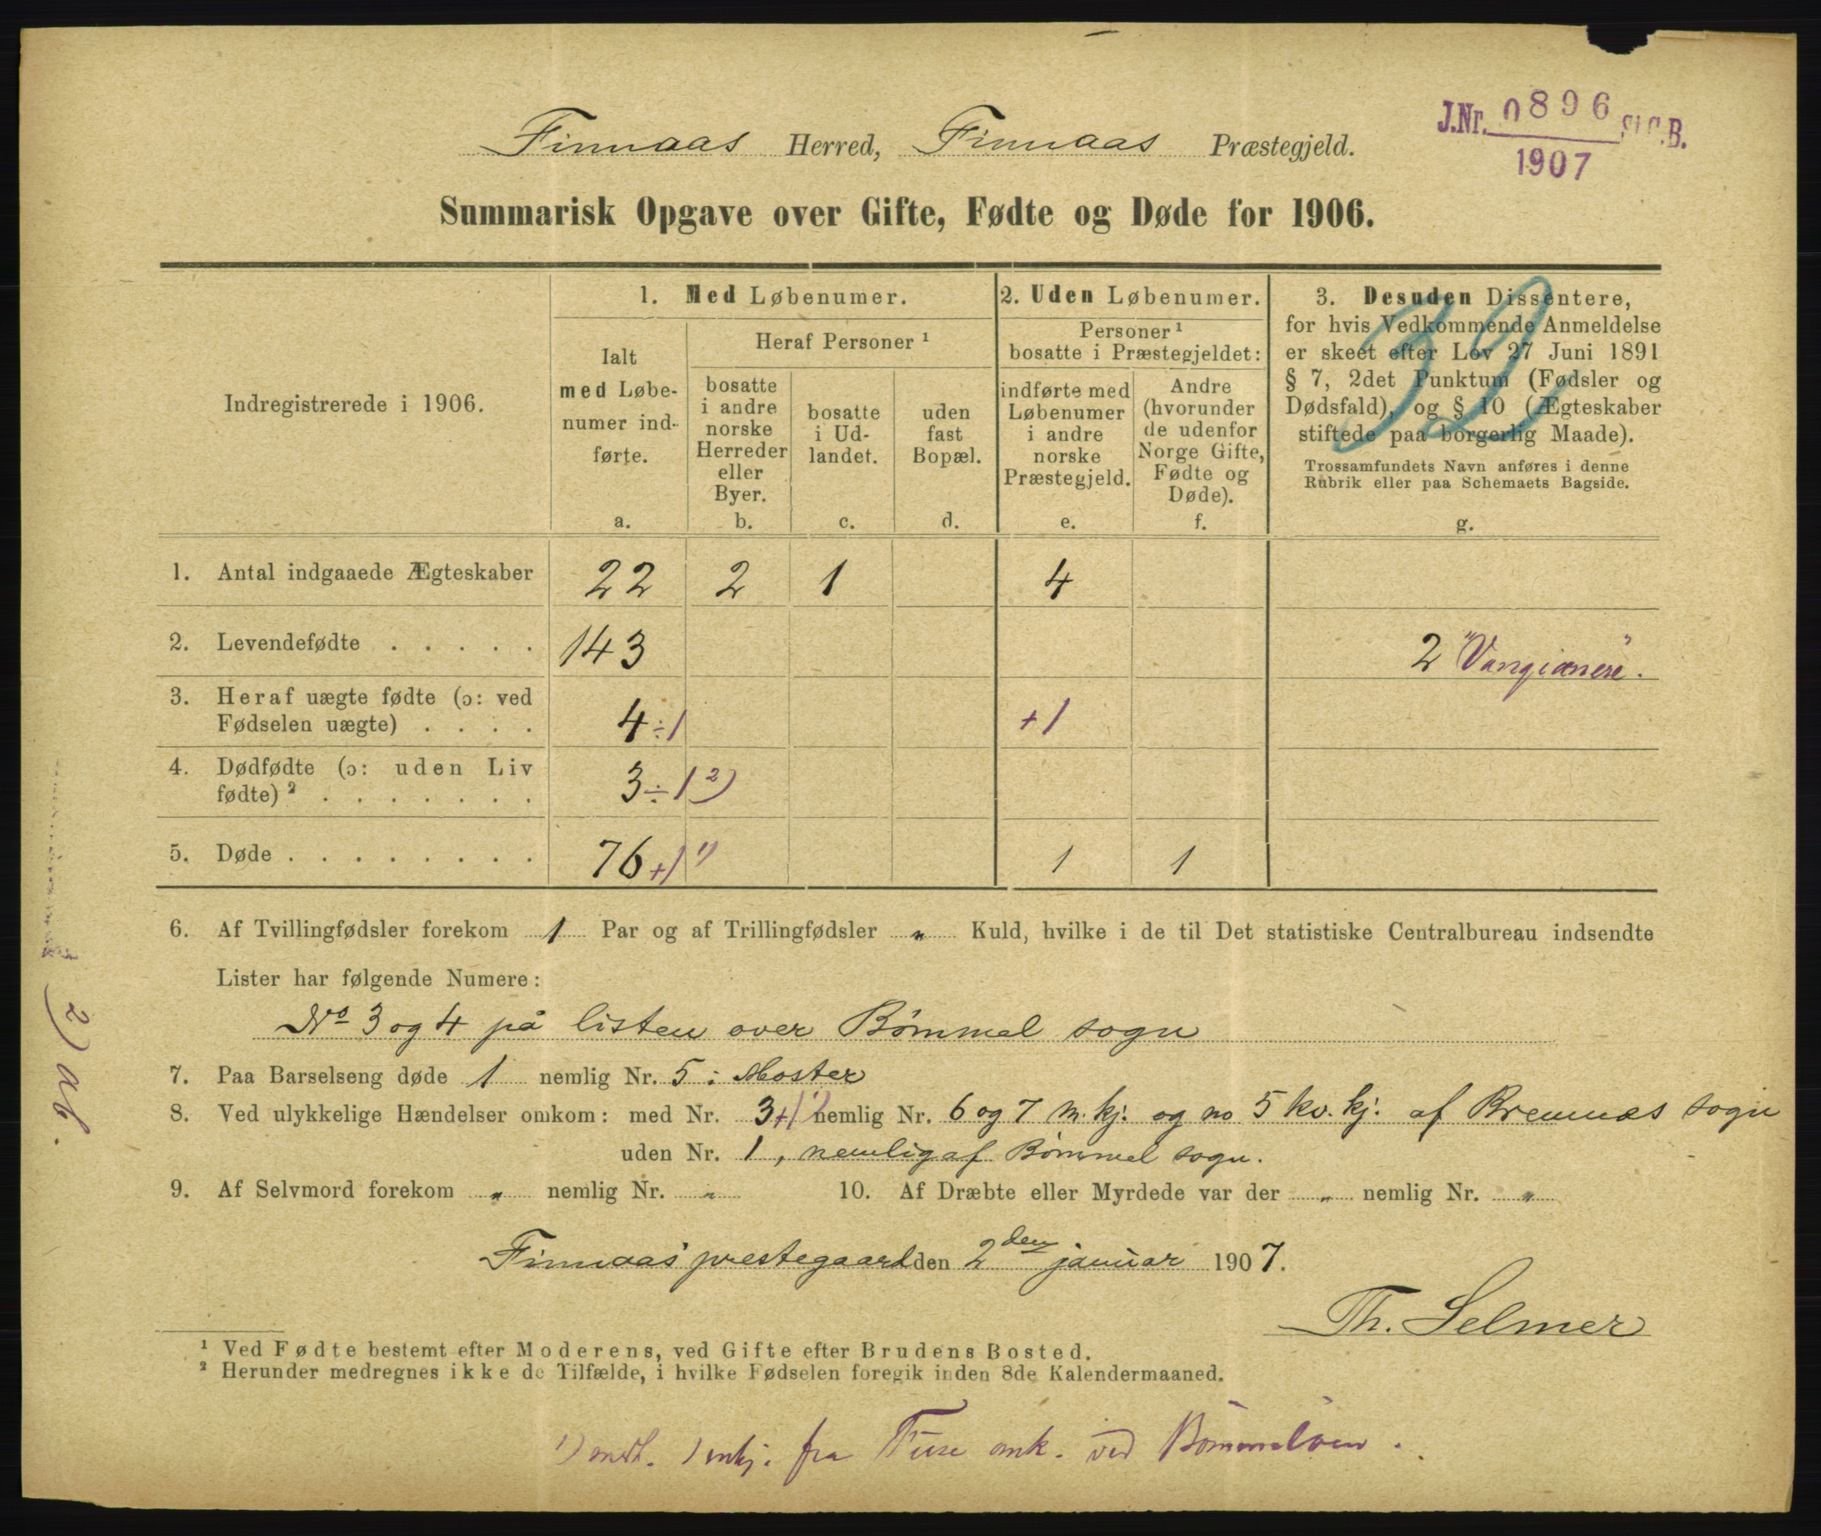 J.Nr. 0896 St.C.B.
1907
Finnaas Herred, Finnaas Præstegjeld.
Summarisk Opgave over Gifte, Fødte og Døde for 1906.
32
Indregistrerede i 1906.
1. Med Løbenumer.
Ialt med Løbenumer indførte.
a.
Heraf Personer ¹
bosatte i andre norske Herreder eller Byer.
b.
bosatte i Udlandet.
c.
uden fast Bopæl.
d.
2. Uden Løbenumer.
Personer ¹ bosatte i Præstegjeldet:
indførte med Løbenumer i andre norske Præstegjeld.
e.
Andre (hvorunder de udenfor Norge Gifte, Fødte og Døde).
f.
3. Desuden Dissentere,
for hvis Vedkommende Anmeldelse
er skeet efter Lov 27 Juni 1891
§ 7, 2det Punktum (Fødsler og
Dødsfald), og § 10 (Ægteskaber
stiftede paa borgerlig Maade).
Trossamfundets Navn anføres i denne
Rubrik eller paa Schemaets Bagside.
g.
1. Antal indgaaede Ægteskaber 22 2 1 4
2. Levendefødte . . . . . 143 2 "Vangianere".
3. Heraf uægte fødte (ɔ: ved
Fødselen uægte) . . . . 4 ÷1 +1
4. Dødfødte (ɔ: uden Liv
fødte) ² . . . . . . . 3 ÷1 2)
5. Døde . . . . . . . . 76 +1 1) 1 1
6. Af Tvillingfødsler forekom 1 Par og af Trillingfødsler " Kuld, hvilke i de til Det statistiske Centralbureau indsendte
Lister har følgende Numere:
No 3 og 4 på listen over Bømmel sogn
7. Paa Barselseng døde 1 nemlig Nr. 5 : Moster
8. Ved ulykkelige Hændelser omkom: med Nr. 3 +1 1) nemlig Nr. 6 og 7 m.kj. og no 5 kv.kj. af Bremnes sogn
uden Nr. 1, nemlig af Bømmel sogn.
9. Af Selvmord forekom " nemlig Nr. " 10. Af Dræbte eller Myrdede var der " nemlig Nr. "
Finnaas prestegaard den 2den januar 1907.
Th. Selmer
¹ Ved Fødte bestemt efter Moderens, ved Gifte efter Brudens Bosted.
² Herunder medregnes ikke de Tilfælde, i hvilke Fødselen foregik inden 8de Kalendermaaned.
1) mdt. 1 mkj. fra Fuse omk. ved Bømmeløen.
2) ab.